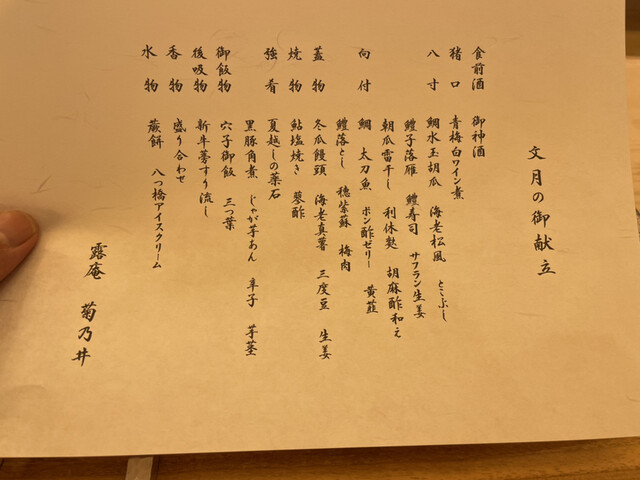 文月の御献立
食前酒 御神酒
猪口 青梅白ワイン煮
八寸 鯛水玉胡瓜 海老松風 とこぶし
鱧子落雁 鱧寿司 サフラン生姜
朝瓜雷干し 利休麸 胡麻酢和え
向付 鯛 太刀魚 ポン酢ゼリー 黄韮
鱧落とし 穂紫蘇 梅肉
蓋物 冬瓜饅頭 海老真薯 三度豆 生姜
焼物 鮎塩焼き 蓼酢
強肴 夏越しの薬石
黒豚角煮 じゃが芋あん 辛子 芋茎
御飯物 穴子御飯 三つ葉
後吸物 新牛蒡すり流し
香物 盛り合わせ
水物 蕨餅 八つ橋アイスクリーム
露庵 菊乃井